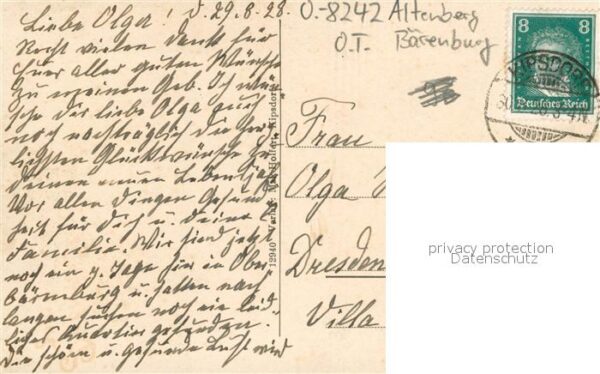 Liebe Olga! d. 29.8.28.
Recht vielen Dank für
Euer aller guten Wünsche
zu meinem Geb. Ich wün-
sche dir liebe Olga auch
noch nachträglich die herz-
lichsten Glückwünsche zu
deinem neuen Lebensjahr
Vor allen Dingen Gesund-
heit für dich u. deine l.
Familie. Wir sind jetzt
noch ein p. Tage hier in Ober-
bärenburg u. hatten nach
langem suchen noch ein leid-
liches Quartier gefunden.
Die schöne u. gesunde Luft wird
O.-8242 Altenberg
O.T. Bärenburg
8 8
Deutsches Reich
KIPSDORF
12940 Verlag: Max Holfert, Kipsdorf
Frau
Olga
Dresden
Villa
privacy protection
Datenschutz